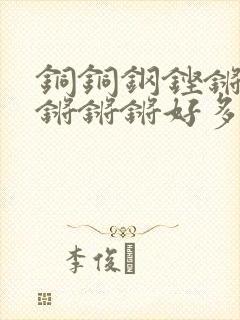 銅銅鋼鏗鏘
鏘鏘鏘好多
李俊